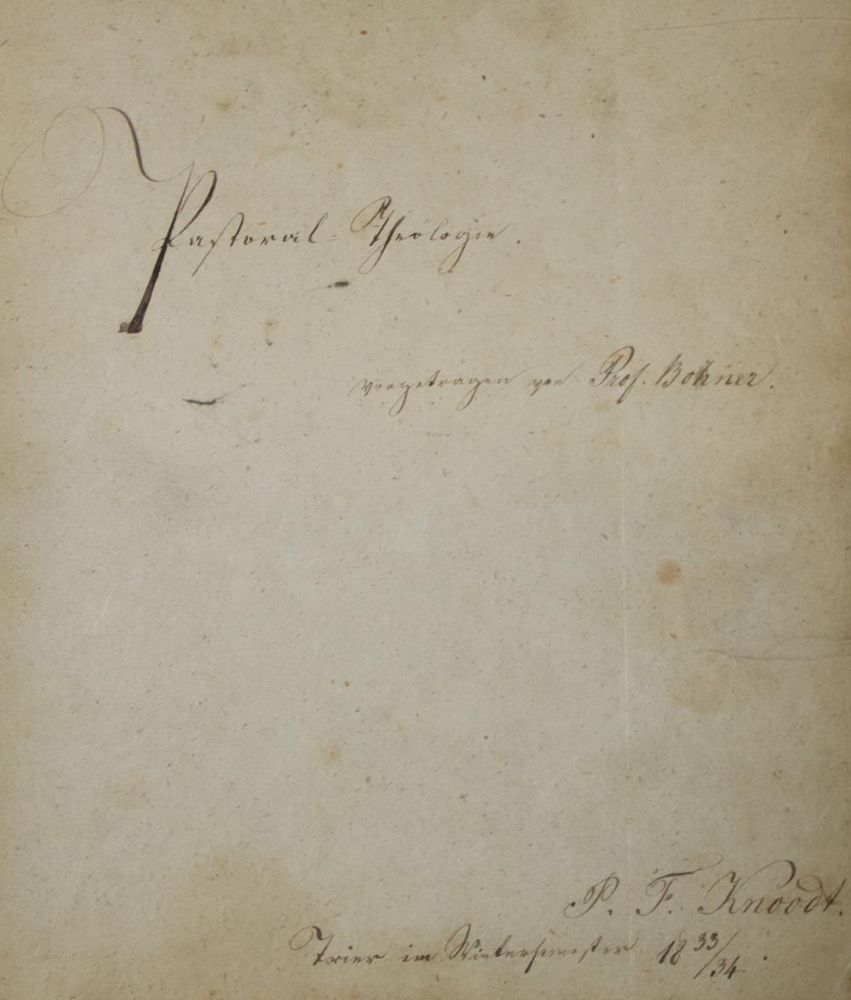 Pastoral-Theologie.
vorgetragen von Prof. Bohner.
P. F. Knoodt.
Trier im Wintersemester 18 33/34.